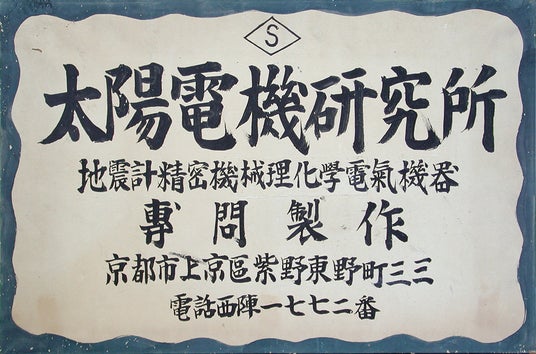 S
太陽電機研究所
地震計精密機械理化学電氣機器
專問製作
京都市上京區紫野東野町三三
電話西陣一七七二番